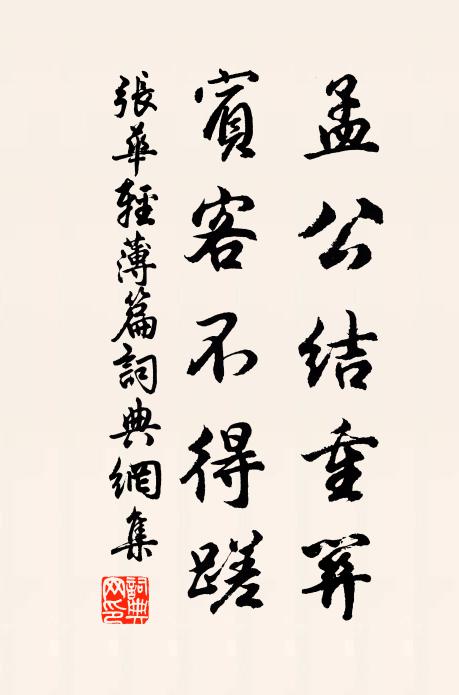 孟公結重關
賓客不得蹉
張華輕薄篇詞典網集
詞典网印